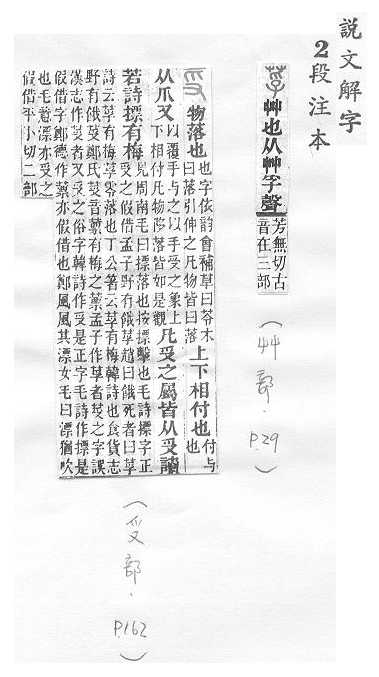 說文解字
2段注本
艸也从艸孚聲
芳無切古
音在三部
(艸部. P.29)
物落也
也字依韵會補草曰苓木
曰落引伸之凡物皆曰落
上下相付也
付与
也
从爪又
以覆手与之以手受之象上
下相付凡物陊落皆如是觀
凡𠬪之屬皆从𠬪讀
若詩摽有梅
見周南毛曰摽落也按摽擊也毛詩摽字正
𠬪之假借孟子野有餓莩趙曰餓死者曰莩
詩云莩有梅莩零落也丁公箸云莩有梅韓詩也食貨志
野有餓𠬪鄭氏𠬪音蔈有梅之蔈孟子作莩者𠬪之字誤
漢志作𠬪者又𠬪之俗字韓詩作𠬪是正字毛詩作摽是
假借字鄭德作蔈亦假借也鄭風風其漂女毛曰漂猶吹
也毛意漂亦𠬪之
假借平小切二部
(𠬪部. P.162)